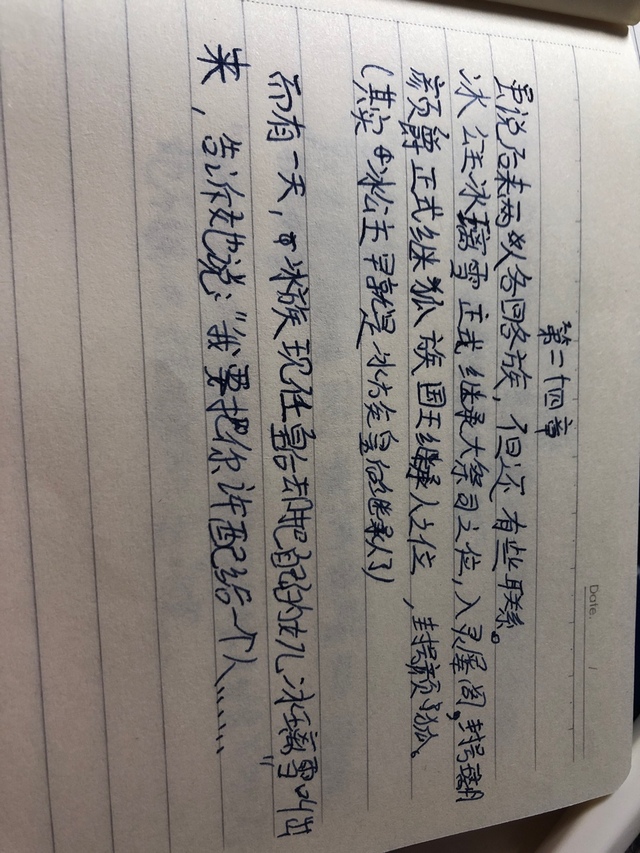 Date.
第二十四章
虽说后来两族各回各族，但还有些联系。
冰公主冰璃雪正式继承大祭司之位，入灵犀阁，封号璃月
颜爵正式继狐族国王继承人之位，封号颜狐。
（其实冰公主早就是冰族皇位继承人了）
而有一天，冰族现任皇后却把自己的女儿冰璃雪叫出
来，告诉她说：“我要把你许配给一个人……”